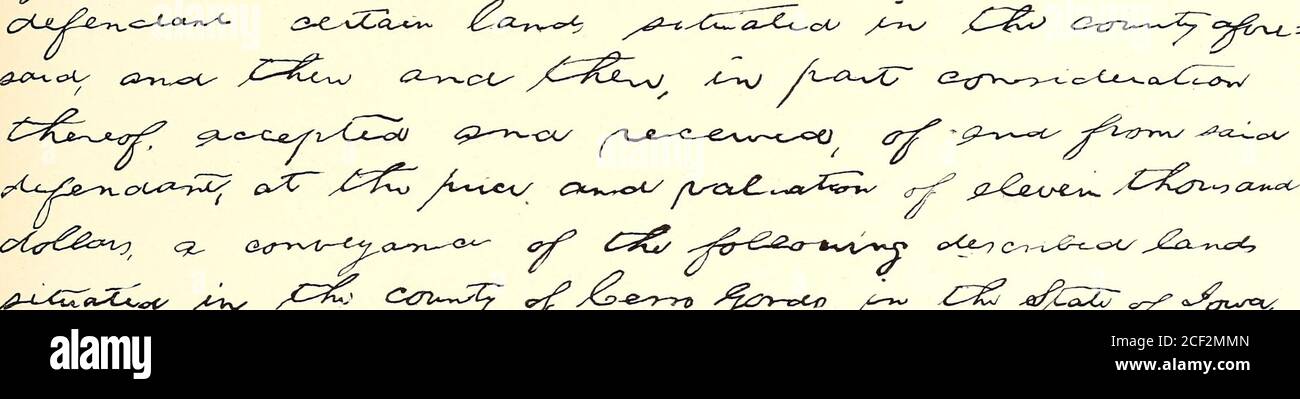 defendant certain lands situated in the county afore=
said, and then and there, in part consideration
thereof, accepted and received, of and from said
defendant, at the price and valuation of eleven thousand
dollars, a conveyance of the following described lands
situated in the county of Cerro Gordo in the State of Iowa,
alamy
Image ID: 2CF2MMN
www.alamy.com